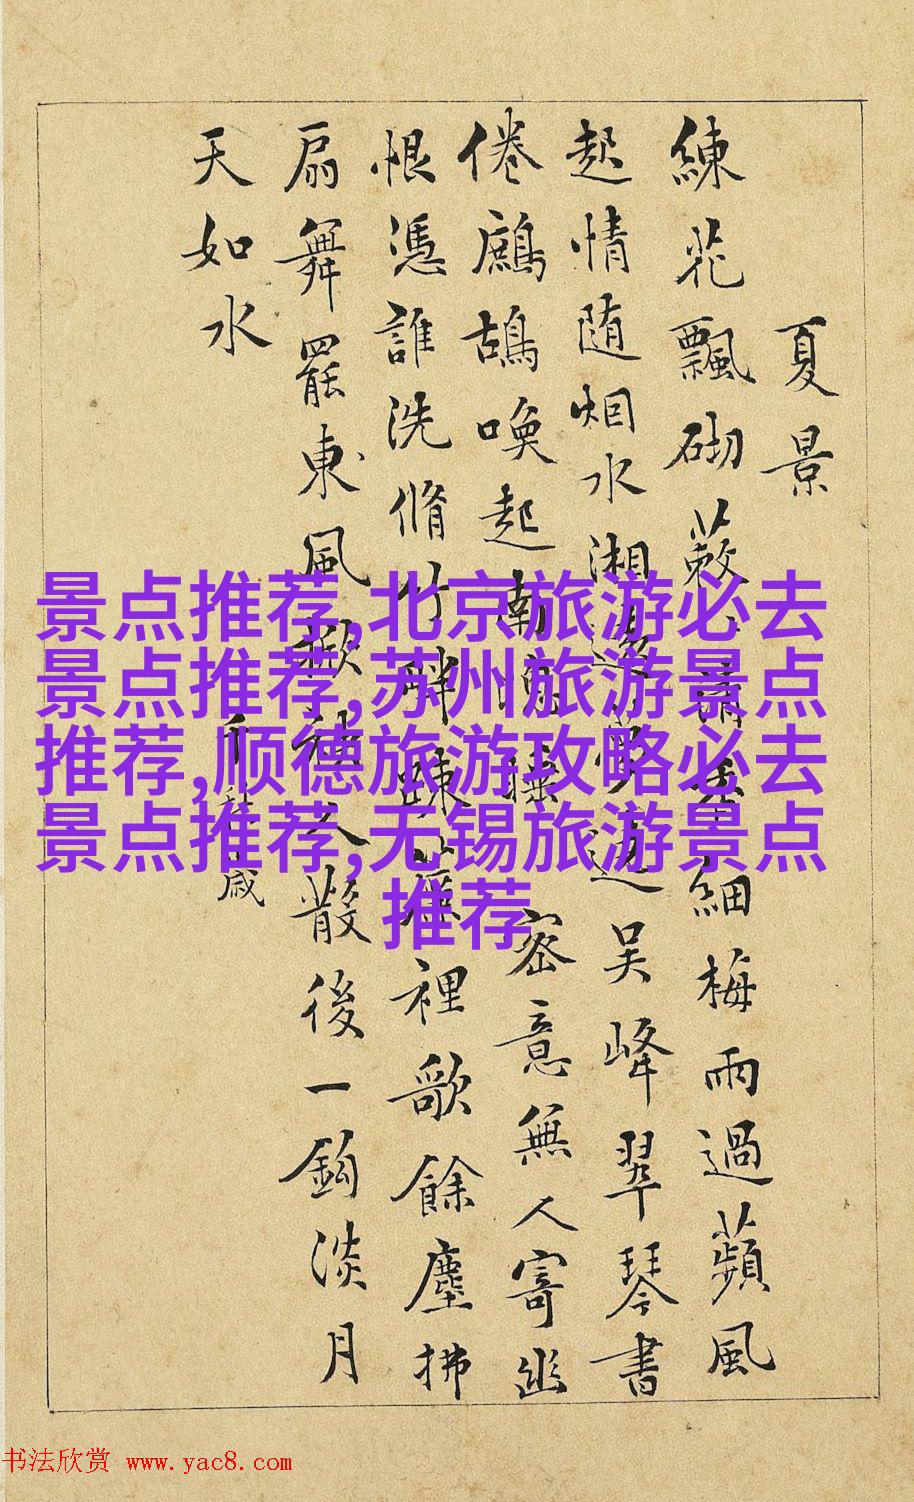 夏景
練花飄砌蔌〻清香細梅雨過蘋風
起情随烟水湘夢吴峰翠琴書
倦鷓鴣喚起南窗睡密意無人寄幽
恨憑誰洗脩竹畔踈簾裡歌餘塵拂
扇舞罷東風掀袂人散後一鈎淡月
天如水
千秋歲
景点推荐,北京旅游必去
景点推荐,苏州旅游景点
推荐,顺德旅游攻略必去
景点推荐,无锡旅游景点
推荐
书法欣赏 www.yac8.com